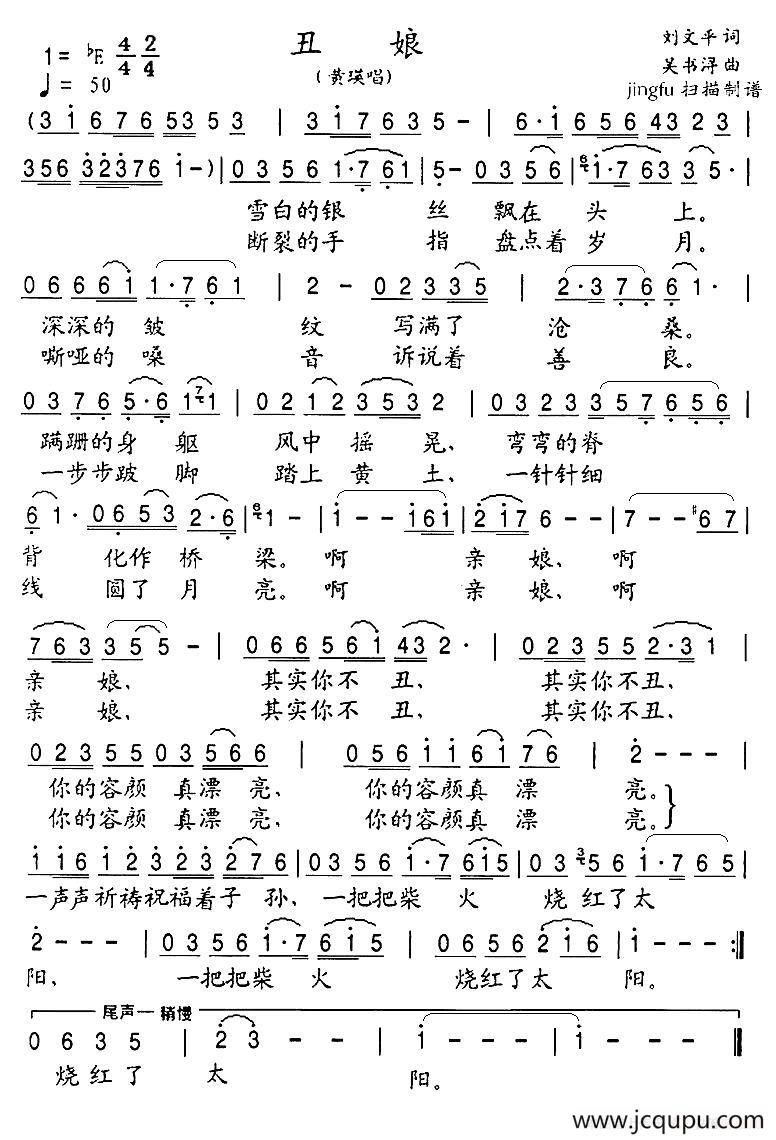 丑 娘
(黄瑛唱)
刘文平 词
吴书浔 曲
jingfu 扫描制谱
1= ♭E 4/4 2/4
♩= 50
(3 i 6 7 6 5 3 5 3 | 3 i 7 6 3 5 - | 6 · i 6 5 6 4 3 2 3 |
3 5 6 3 2 3 7 6 i -) | 0 3 5 6 1 · 7 6 1 | 5 - 0 3 5 6 | 1 · 7 6 3 3 5 · |
雪白的银 丝 飘在 头 上。
断裂的手 指 盘点着 岁 月。
0 6 6 6 1 1 · 7 6 1 | 2 - 0 2 3 3 5 | 2 · 3 7 6 6 1 · |
深深的 皱 纹 写满了 沧 桑。
嘶哑的 嗓 音 诉说着 善 良。
0 3 7 6 5 · 6 1 7 1 | 0 2 1 2 3 5 3 2 | 0 3 2 3 3 5 7 6 5 6 |
蹒跚的身 躯 风中 摇 晃、 弯弯的脊
一步步跛 脚 踏上 黄 土、 一针针细
6 1 · 0 6 5 3 2 · 6 | 1 - | i - - i 6 i | 2 i 7 6 - - | 7 - - #6 7 |
背 化作 桥 梁。啊 亲 娘、 啊
线 圆了 月 亮。啊 亲 娘、 啊
7 6 3 3 5 5 - | 0 6 6 5 6 i 4 3 2 · | 0 2 3 5 5 2 · 3 1 |
亲 娘、 其实你不 丑、 其实你不丑、
亲 娘、 其实你不 丑、 其实你不丑、
0 2 3 5 5 0 3 5 6 6 | 0 5 6 i i 6 i 7 6 | 2 - - - |
你的容颜 真漂 亮、 你的容颜真 漂 亮。}
你的容颜 真漂 亮、 你的容颜真 漂 亮。}
i i 6 i 2 3 2 3 2 7 6 | 0 3 5 6 i · 7 6 i 5 | 0 3 3 5 6 i · 7 6 5 |
一声声祈祷祝福着子 孙、一把把柴 火 烧 红了太
2 - - - | 0 3 5 6 i · 7 6 i 5 | 0 6 5 6 2 i 6 | 2 - - - :‖
阳、 一把把柴 火 烧红了太 阳。
尾声一稍慢
0 6 3 5 | 2 3 - - | i - - - | i - - - ‖
烧红了 太 阳。
www.jcqupu.com